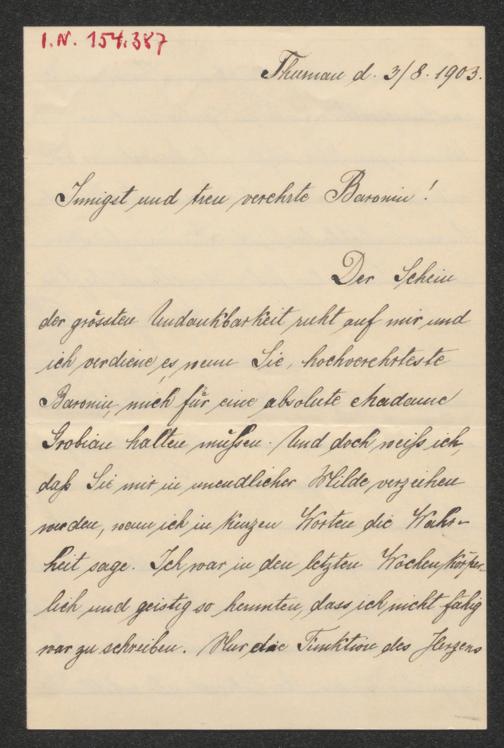 I.N. 154.387
Thurnau d. 3/8. 1903.
Innigst und treu verehrte Baronin!
Der Schein
der grössten Undankbarkeit ruht auf mir und
ich verdiene es wenn Sie, hochverehrteste
Baronin, mich für eine absolute Madame
Grobian halten müssen. Und doch weiß ich,
daß Sie mir in unendlicher Milde verzeihen
werden, wenn ich in kurzen Worten die Wahr-
heit sage. Ich war in den letzten Wochen körper-
lich und geistig so herunten, dass ich nicht fähig
war zu schreiben. Nur die Funktion des Herzens